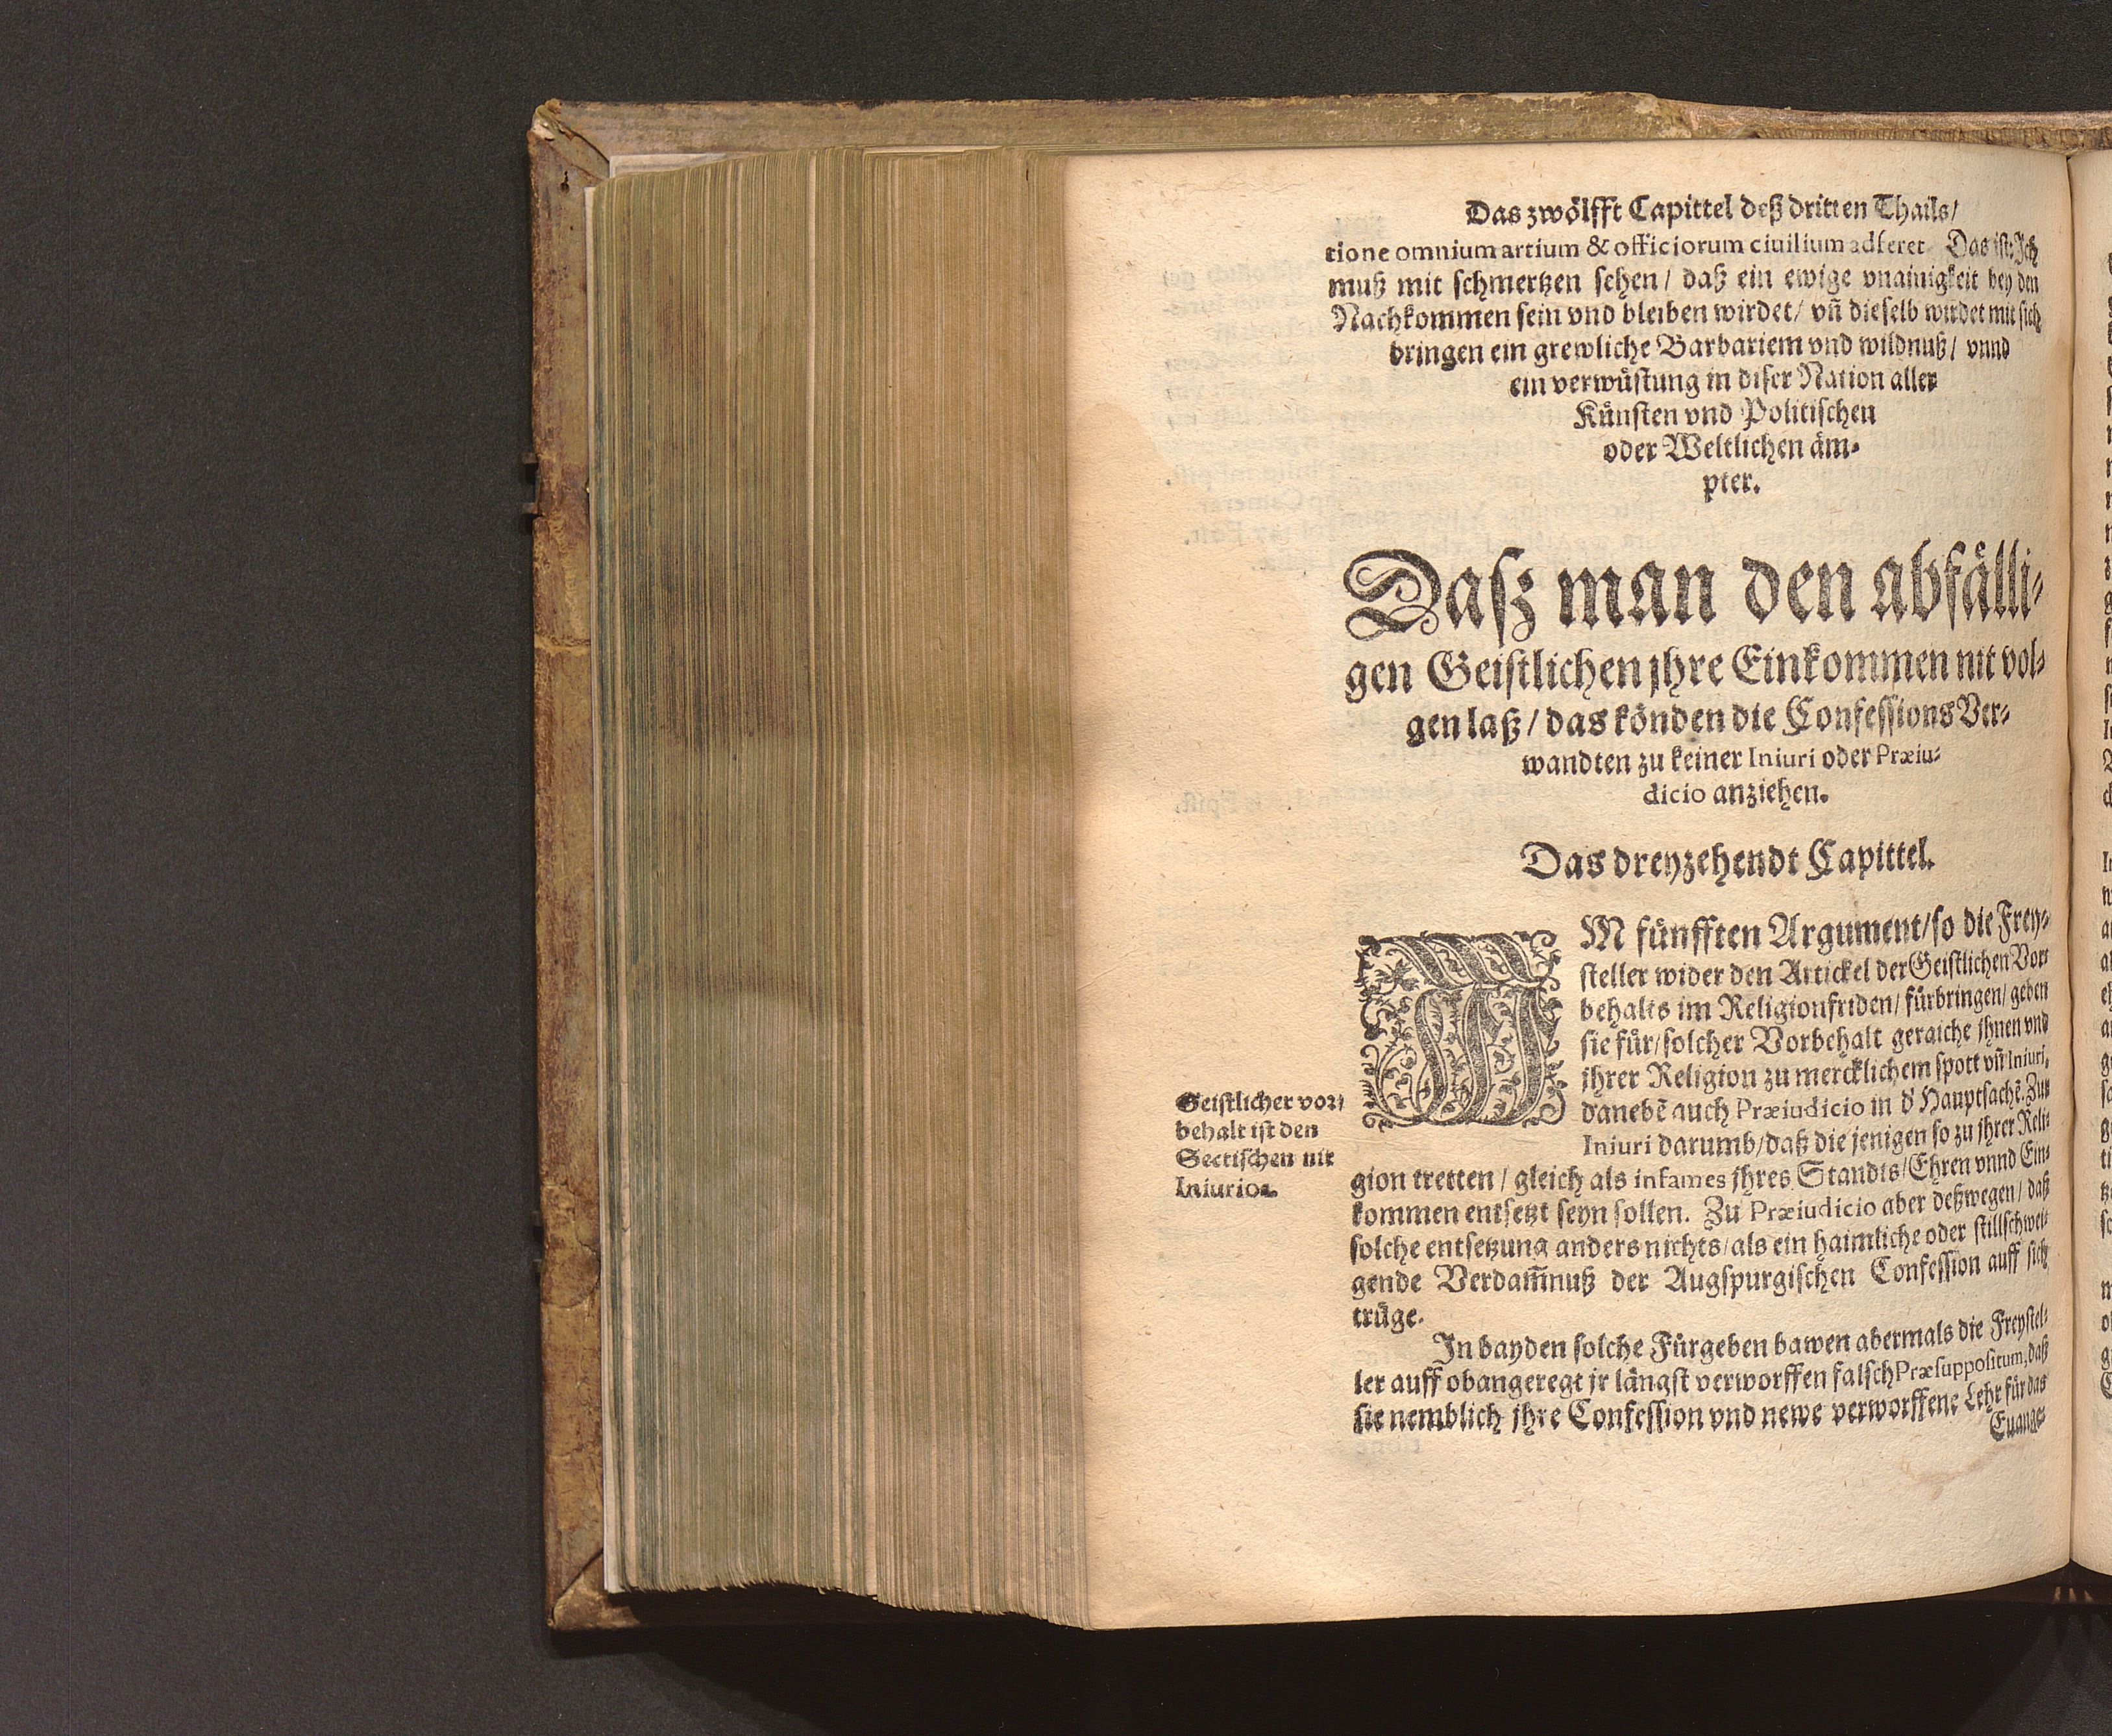 Das zwölfft Capittel deß dritten Thails/
tione omnium artium & officiorum ciuilium adferet. Das ist: Jch
muß mit schmertzen sehen / daß ein ewige vnainigkeit bey den
Nachkommen sein vnd bleiben wirdet / vñ dieselb wirdet mit sich
bringen ein grewliche Barbariem vnd wildnuß / vnnd
ein verwüstung in diser Nation aller
Künsten vnd Politischen
oder Weltlichen äm-
pter.
Dasz man den abfälli-
gen Geistlichen jhre Einkommen nit vol-
gen laß / das könden die Confessions Ver-
wandten zu keiner Iniuri oder Præiu-
dicio anziehen.
Das dreyzehendt Capittel.
WM fünfften Argument/ so die Frey-
steller wider den Artickel der Geistlichen Vor-
behalts im Religionfriden / fürbringen / geben
sie für / solcher Vorbehalt geraiche jhnen vnd
jhrer Religion zu mercklichem spott vñ Iniuri,
danebē auch Præiudicio in d' Hauptsachē. Zur
Iniuri darumb / daß die jenigen so zu jhrer Reli-
gion tretten / gleich als infames jhres Standts / Ehren vnnd Ein-
kommen entsetzt seyn sollen. Zu Præiudicio aber deßwegen / daß
solche entsetzung anders nichts / als ein haimliche oder stillschwei-
gende Verdam̄nuß der Augspurgischen Confession auff sich
trüge.
In bayden solche Fürgeben bawen abermals die Freystel-
ler auff obangeregt jr längst verworffen falsch Præsuppositum, daß
sie nemblich jhre Confession vnd newe verworffene Lehr für das
Euange-
Geistlicher vor-
behalt ist den
Sectischen nit
Iniurios.